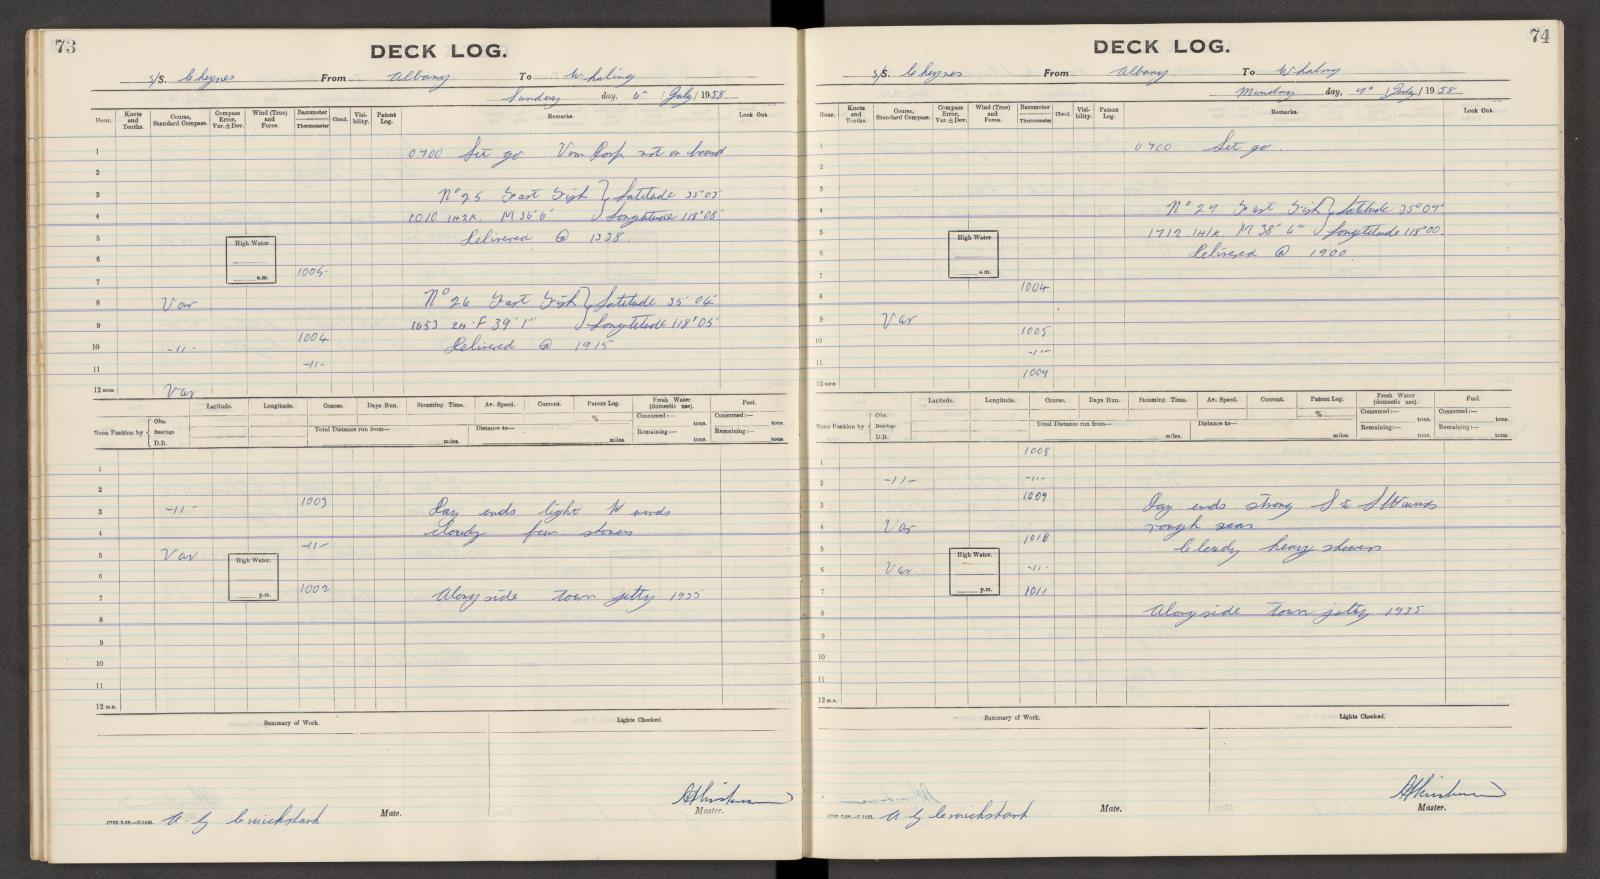 73
DECK LOG.
S/S. Cheynes From Albany To Whaling
Sunday day, 6th / July / 1958
Hour. Knots and Tenths. Course, Standard Compass. Compass Error, Var. ± Dev. Wind (True) and Force. Barometer Thermometer Cloud. Visibility. Patent Log. Remarks. Look Out.
1 0700 Set go not on board
2
3 No 25 Fast Fish } Latitude 35°03'
4 1010 1H2K. M 36'6" } Longtitude 118°08'
5 Delivered @ 1338.
High Water
6
a.m. 1005
7
8 Var No 26 Fast Fish } Latitude 35°04'
9 1653 2H. F 39'1" } Longtitude 118°05'
1004
10 -11- Delivered @ 1915
11 -11-
12 noon Var
Latitude. Longitude. Course. Days Run. Steaming Time. Av. Speed. Current. Patent Log. Fresh Water (domestic use). Fuel.
Noon Position by { Obs. Bearings D.R. Total Distance run from— miles. Distance to— miles. % Consumed:— tons. Remaining:— tons. Consumed:— tons. Remaining:— tons.
1
2
1003
3 -11- Day ends light W winds
4 Cloudy few showers
-11-
5 Var High Water.
6
p.m. 1002
7 Alongside town jetty 1935
8
9
10
11
12 m.n.
Summary of Work. Lights Checked.
Mate. Master.
A. G
74
DECK LOG.
S/S. Cheynes From Albany To Whaling
Monday day, 7th / July / 1958
Hour. Knots and Tenths. Course, Standard Compass. Compass Error, Var. ± Dev. Wind (True) and Force. Barometer Thermometer Cloud. Visibility. Patent Log. Remarks. Look Out.
1 0700 Set go.
2
3
4 No 27 Fast Fish } Latitude 35°04'
5 1712. 1H1K. M 38'6" } Longtitude 118°00'
High Water
6 Delivered @ 1900.
a.m.
7
1004
8
9 Var
1005
10
-11-
11
1009
12 noon
Latitude. Longitude. Course. Days Run. Steaming Time. Av. Speed. Current. Patent Log. Fresh Water (domestic use). Fuel.
Noon Position by { Obs. Bearings D.R. Total Distance run from— miles. Distance to— miles. % Consumed:— tons. Remaining:— tons. Consumed:— tons. Remaining:— tons.
1008
1
2 -11- -11-
1009
3 Day ends strong S to SW winds
4 Var rough seas
1010
5 Cloudy heavy showers
High Water.
6 Var -11-
p.m. 1011
7
8 Alongside town jetty 1935
9
10
11
12 m.n.
Summary of Work. Lights Checked.
Mate. Master.
A. G